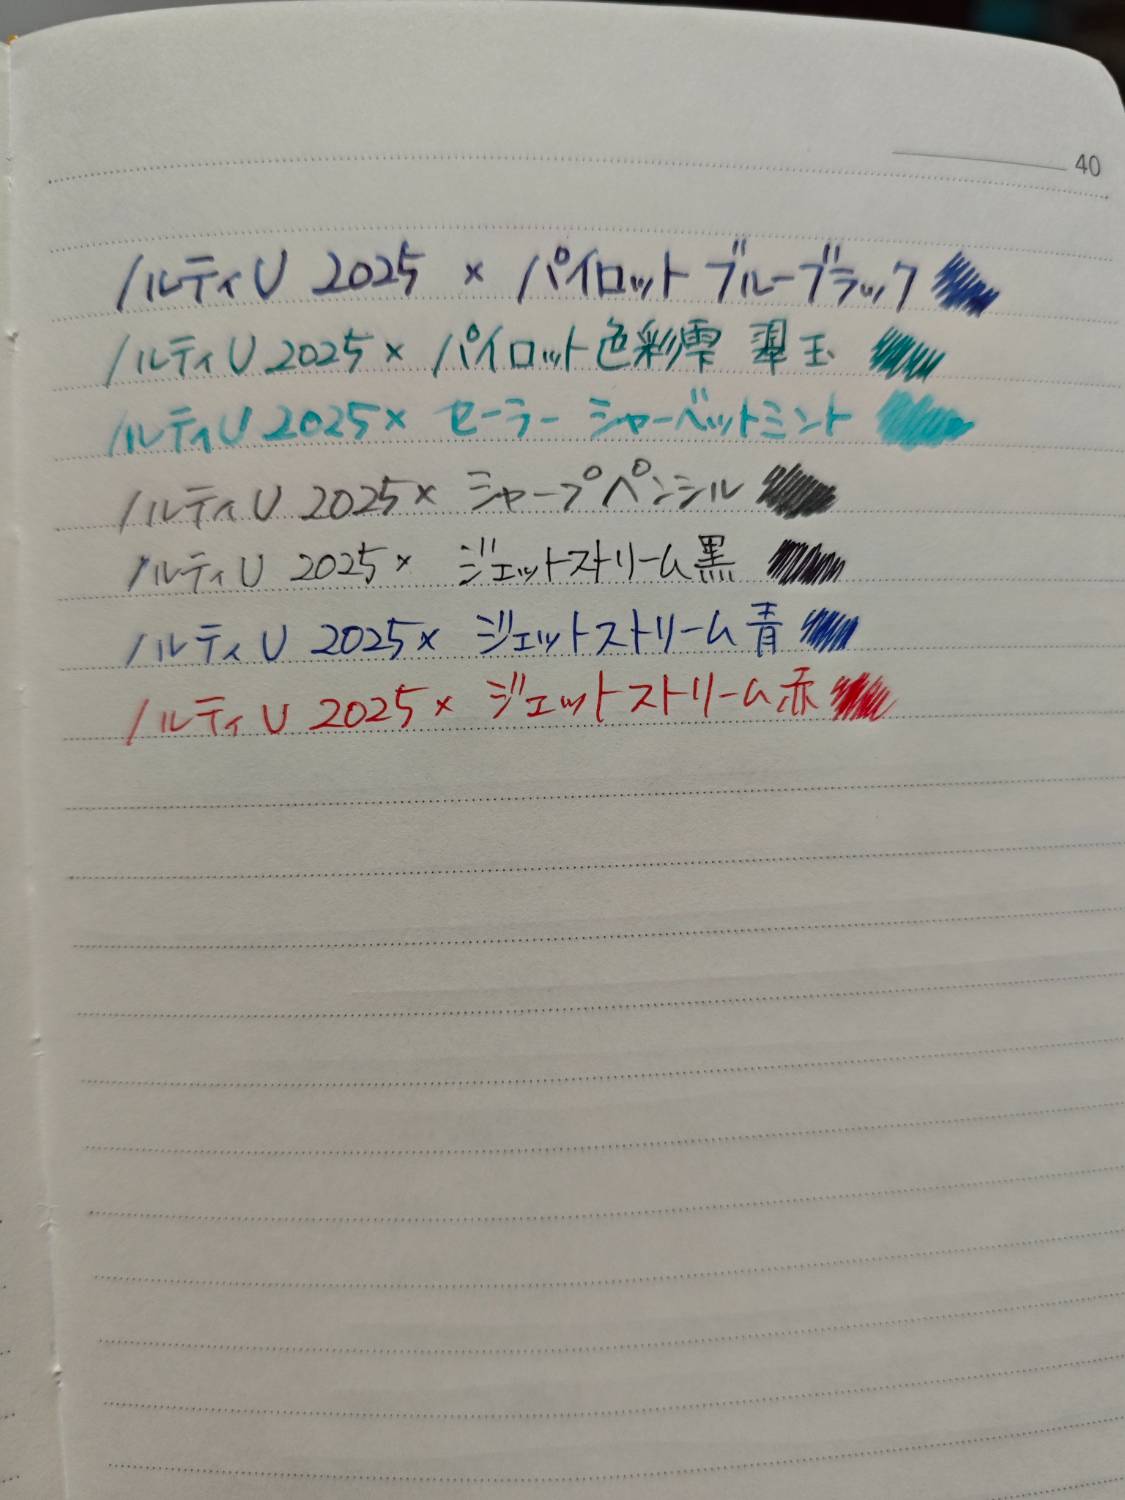 40
ノルティU 2025 × パイロット ブルーブラック
ノルティU 2025 × パイロット色彩雫 翠玉
ノルティU 2025 × セーラー シャーベットミント
ノルティU 2025 × シャープペンシル
ノルティU 2025 × ジェットストリーム黒
ノルティU 2025 × ジェットストリーム青
ノルティU 2025 × ジェットストリーム赤